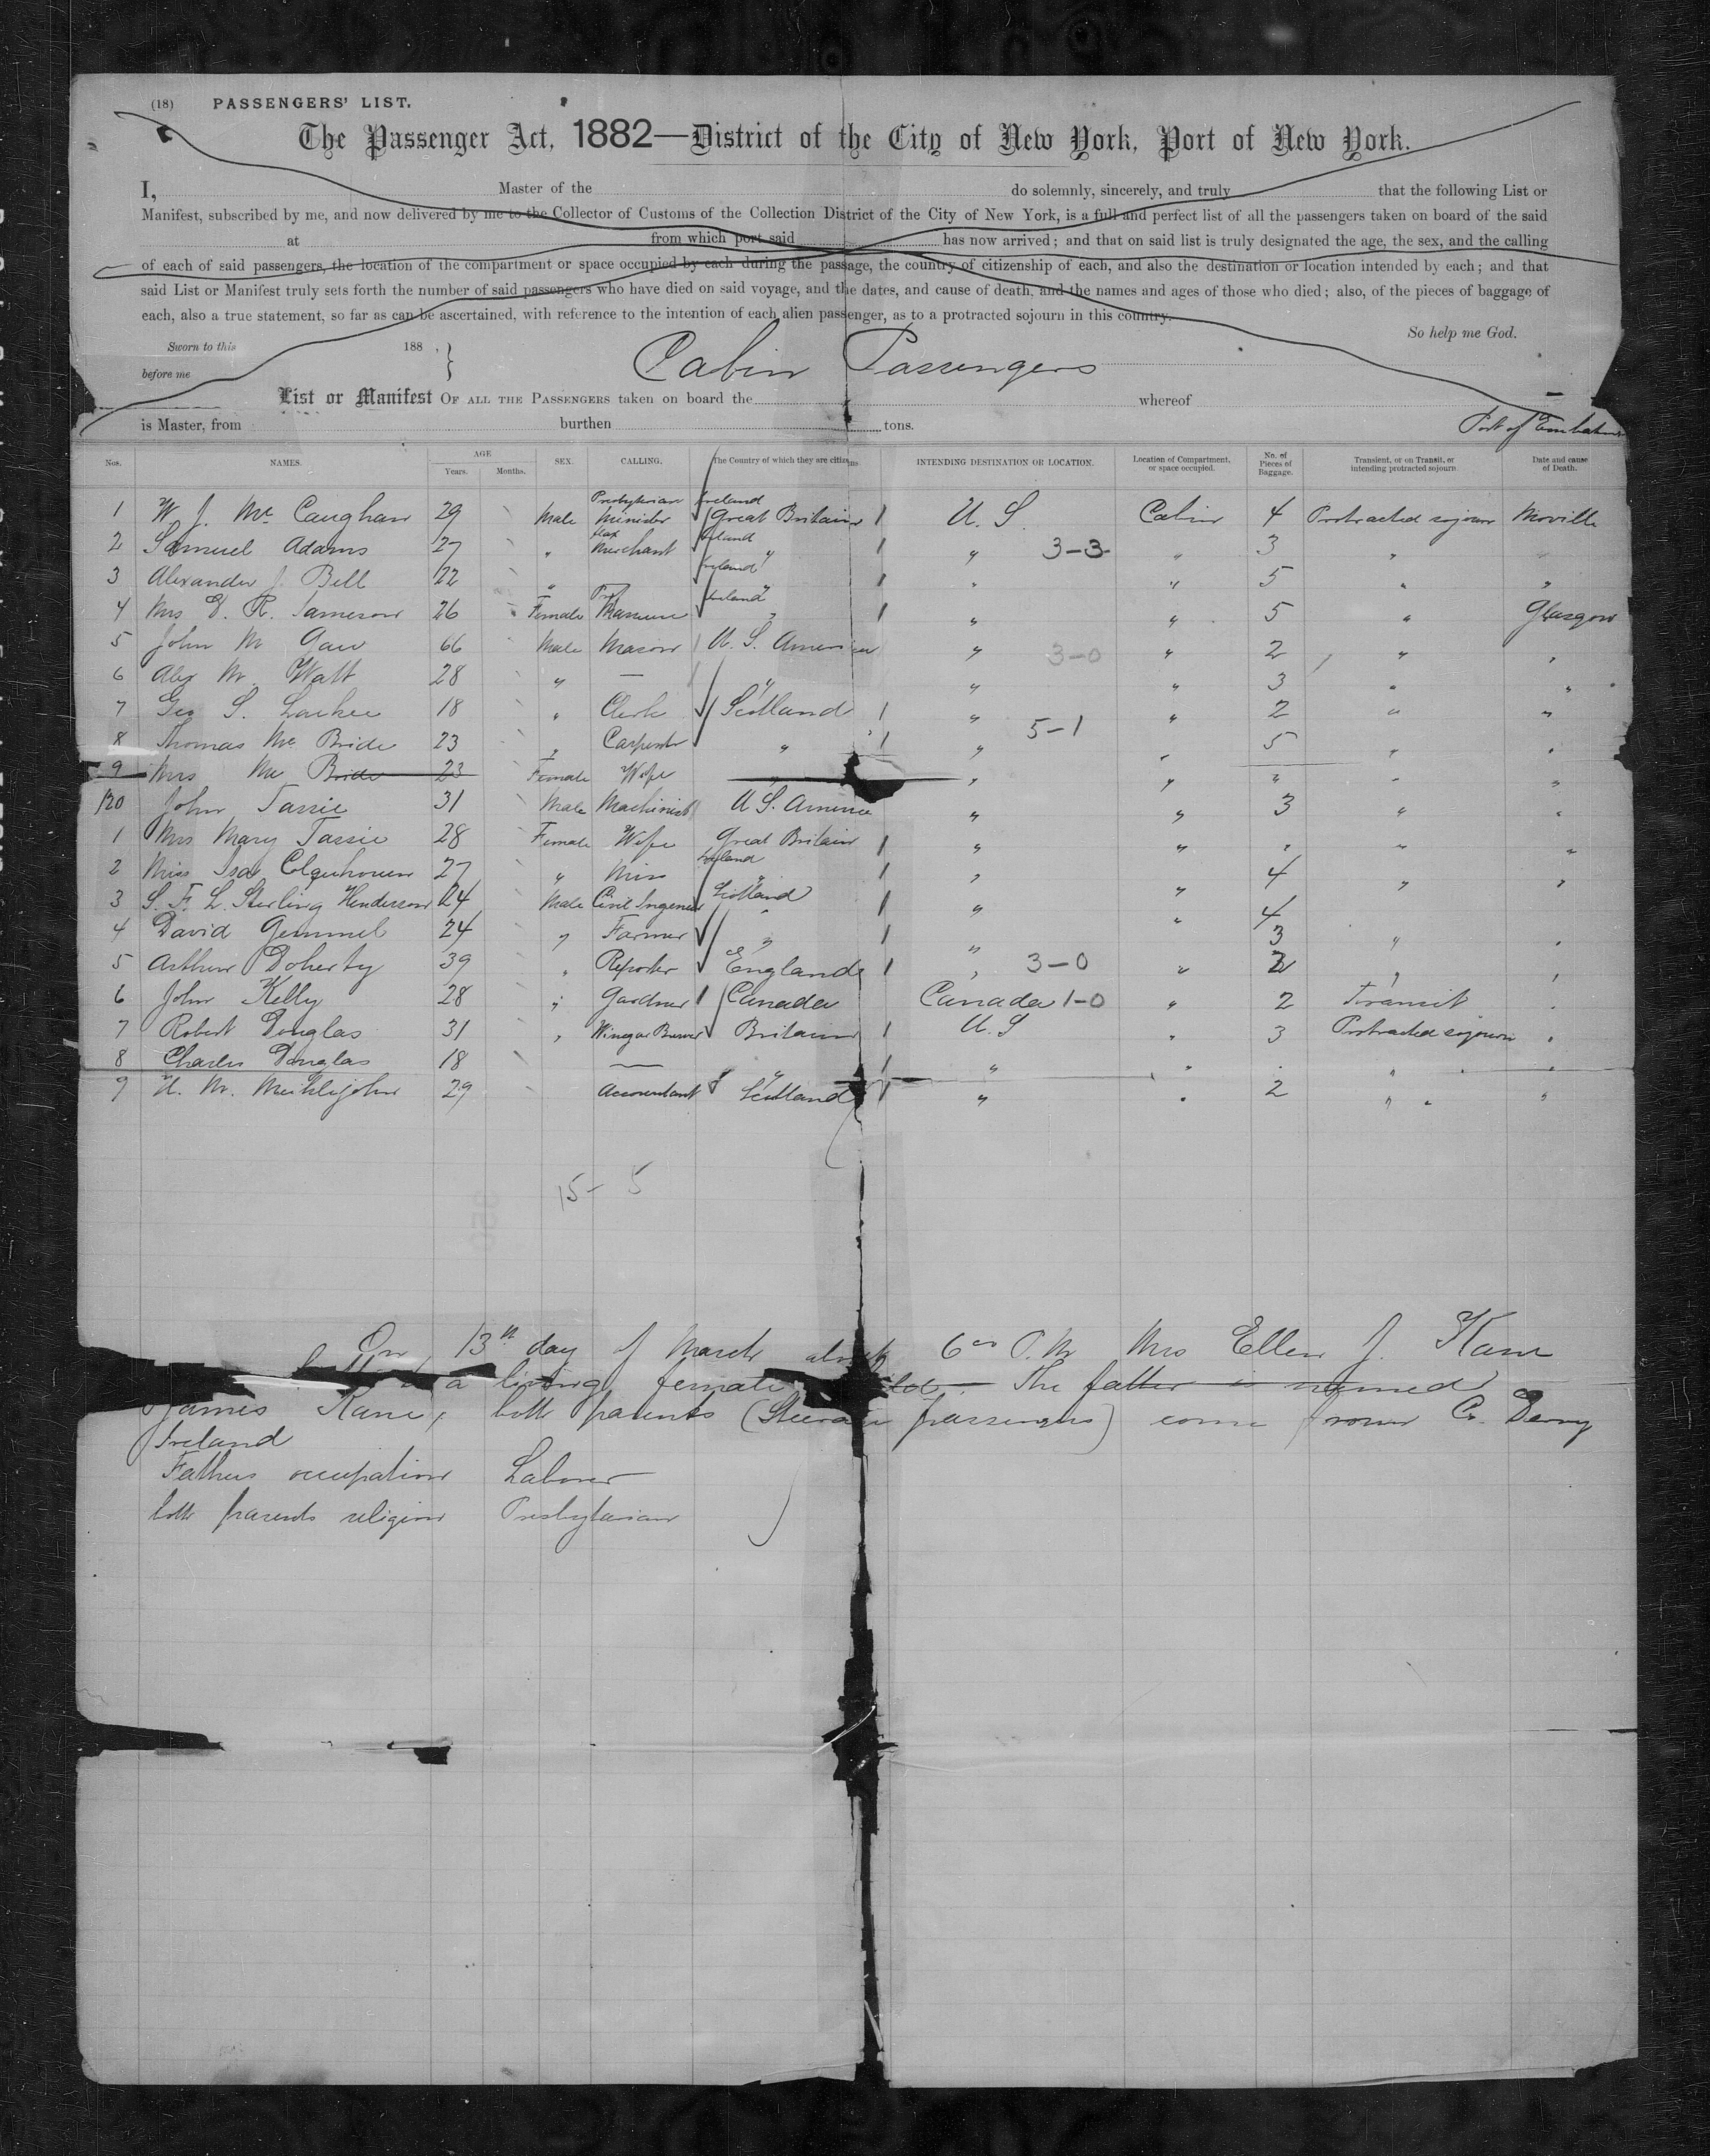 (18) PASSENGERS' LIST.
The Passenger Act, 1882—District of the City of New York, Port of New York.
I, Master of the do solemnly, sincerely, and truly that the following List or
Manifest, subscribed by me, and now delivered by me to the Collector of Customs of the Collection District of the City of New York, is a full and perfect list of all the passengers taken on board of the said
at from which port said has now arrived; and that on said list is truly designated the age, the sex, and the calling
of each of said passengers, the location of the compartment or space occupied by each during the passage, the country of citizenship of each, and also the destination or location intended by each; and that
said List or Manifest truly sets forth the number of said passengers who have died on said voyage, and the dates, and cause of death, and the names and ages of those who died; also, of the pieces of baggage of
each, also a true statement, so far as can be ascertained, with reference to the intention of each alien passenger, as to a protracted sojourn in this country.
So help me God.
Sworn to this 188
before me
Cabin Passengers
List or Manifest OF ALL THE PASSENGERS taken on board the whereof
is Master, from burthen tons.
Port of
Nos. NAMES. AGE Years. Months. SEX. CALLING. The Country of which they are citizens. INTENDING DESTINATION OR LOCATION. Location of Compartment, or space occupied. No. of Pieces of Baggage. Transient, or on Transit, or intending protracted sojourn Date and cause of Death.
1 W. J. Mc Caughan 29 Male Presbyterian Minister Ireland Great Britain 1 U. S. Cabin 4 Protracted sojourn Moville
2 Samuel Adams 27 " flax Merchant Ireland " 1 " 3-3 " 3 " "
3 Alexander J. Bell 22 " Ireland " 1 " " 5 " "
4 Mrs R. Jameson 26 Female Ireland " 1 " " 5 " Glasgow
5 John M Gaw 66 Male Mason U. S. America " 3-0 " 2 " "
6 Alex M. Watt 28 " — " " " 3 " "
7 Geo S. 18 " Clerk Scotland 1 " " 2 " "
8 Thomas Mc Bride 23 " Carpenter " 1 " 5-1 " 5 " "
9 Mrs Mc Bride 23 Female Wife " " " " " "
120 John Tassie 31 Male Machinist U S. America " " 3 " "
1 Mrs Mary Tassie 28 Female Wife Great Britain 1 " " " " "
2 Miss Isa Colquhoun 27 " Miss " 1 " " 4 " "
3 S. F. L. Sterling Henderson 24 Male Civil Ingeneer Scotland 1 " " 4
4 David Gemmel 24 " Farmer " 1 " 3 " "
5 Arthur Doherty 39 " Reporter England 1 " 3-0 " 2 " "
6 John Kelly 28 " Gardner Canada Canada 1-0 " 2 Transit "
7 Robert Douglas 31 " Vinegar Brewer Britain 1 U. S " 3 Protracted sojourn "
8 Charles Douglas 18 — " 1 " " " " "
9 M. Meiklejohn 29 Accountant Scotland 1 " " 2 " " "
15- 5
On 13th day of March about 6 P.M Mrs Ellen J. Kane
a living female The father is named
James Kane, both parents (Steerage passengers) come from Co. Derry
Ireland
Fathers occupation Laborer
both parents religion Presbyterian